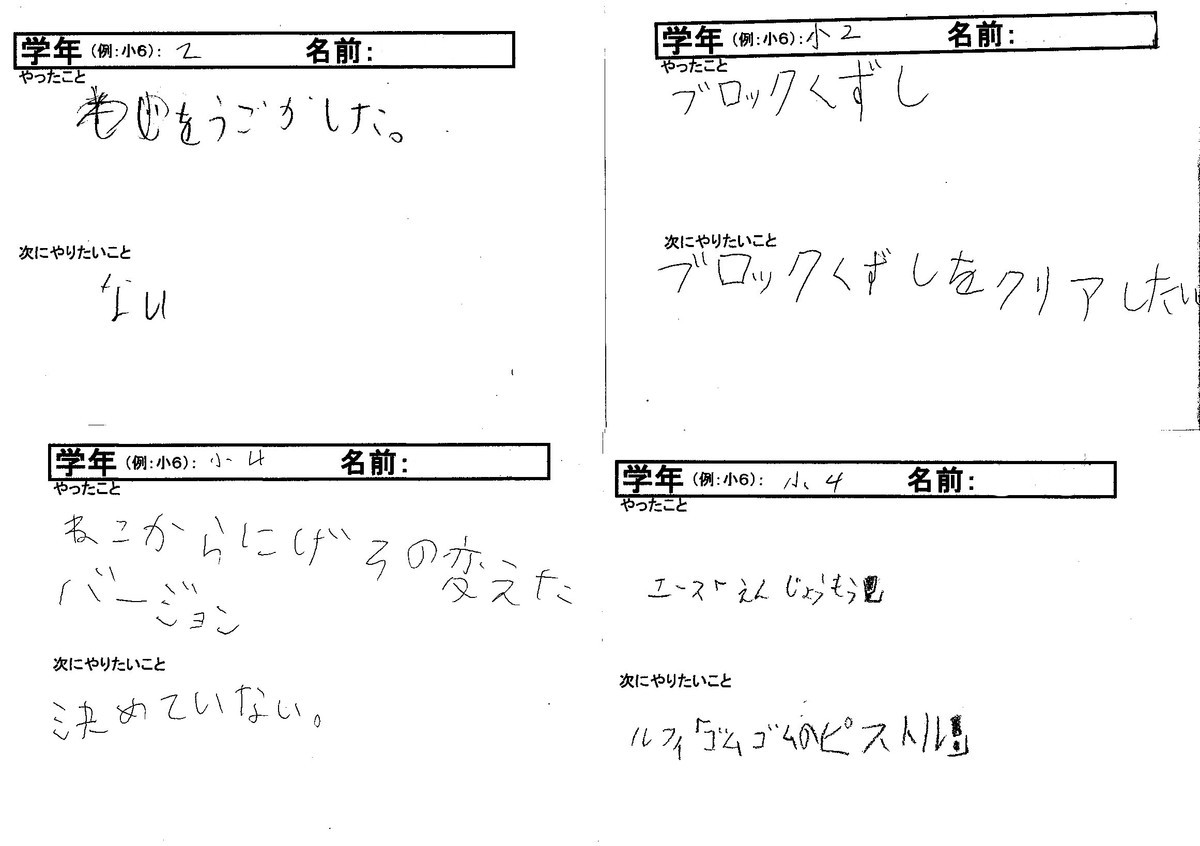 学年(例:小6): 2 名前:
やったこと
をうごかした。
次にやりたいこと
ない
学年(例:小6): 小2 名前:
やったこと
ブロックくずし
次にやりたいこと
ブロックくずしをクリアしたい
学年(例:小6): 小4 名前:
やったこと
ねこからにげるの変えた
バージョン
次にやりたいこと
決めていない。
学年(例:小6): 小4 名前:
やったこと
エース「えんじょうもう」
次にやりたいこと
ルフィ「ゴムゴムのピストル」